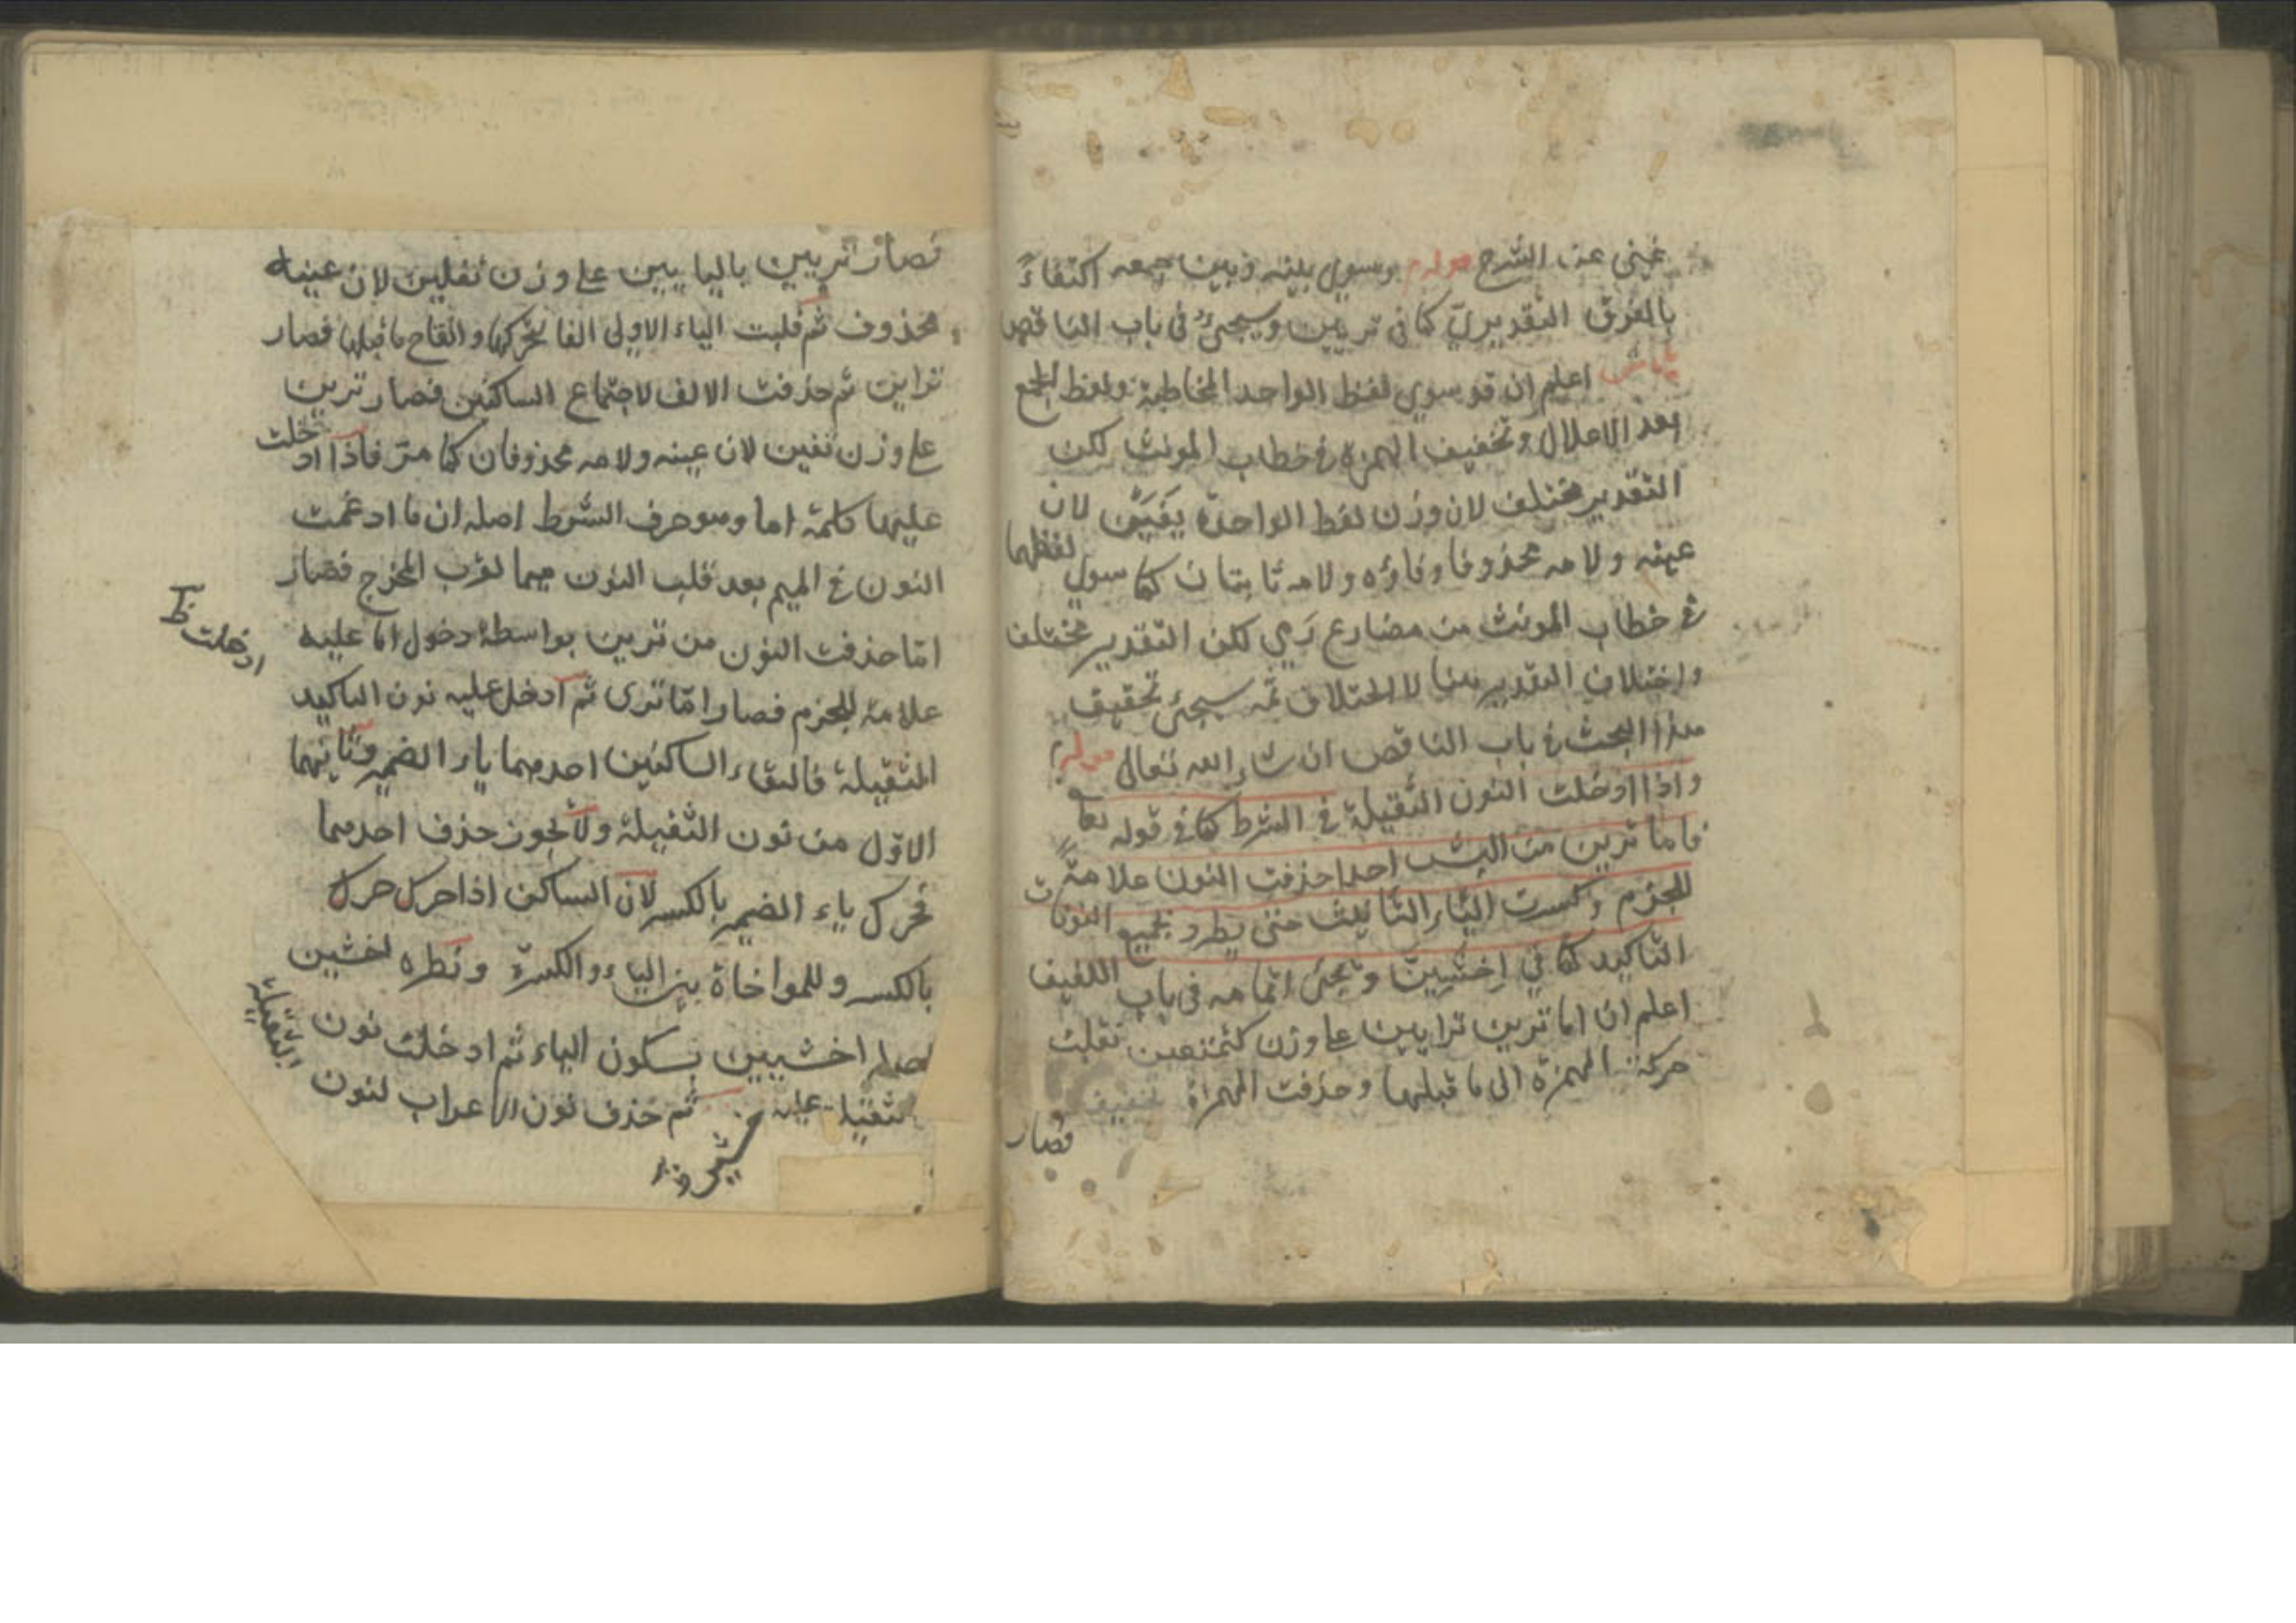 غني عن الشرح قوله م وسوي بينه وبين جمعه اكتفاءً
بالفرق التقديريّ كما في ترين وسيجئ في باب الناقص
ش اعلم ان قد سوي لفظ الواحد المخاطبة ولفظ الجمع
بعد الاعلال وتخفيف الهمزة في خطاب المونث لكن
التقدير مختلف لان وزن لفظ الواحدة لان
عينه ولامه محذوفا وفاؤه ولامه ثابتان كما سوي لفظهما
في خطاب المونث من مضارع رمي لكن التقدير مختلف
واختلاف التقدير هنا لاختلاف ثمه سيجئ تحقيق
هذا البحث في باب الناقص ان شاء الله تعالى قوله م
واذا ادخلت النون الثقيلة في الشرط كما في قوله تعا
فاما ترين من البشر احدا حذفت النون علامة
للجزم وكسرت الياء التانيث حتى يطرد بجميع النونات
التاكيد كما في اخشين ويجئ تمامه في باب اللفيف
اعلم ان اما ترين ترايين على وزن كتمنعين نقلت
حركة الهمزة الى ما قبلها وحذفت الهمزة تخفيفا
فصار
فصار تريين باليايين على وزن تفلين لان عينه
محذوف ثم قلبت الياء الاولى الفا لتحركها وانفتاح ما قبلها فصار
تراين ثم حذفت الالف لاجتماع الساكنين فصار ترين
على وزن تفين لان عينه ولامه محذوفان كما مرّ فاذا ادخلت
عليها كلمة اما وهو حرف الشرط اصله ان ما ادغمت
النون في الميم بعد قلب النون ميما لقرب المخرج فصار
امّا حذفت النون من ترين بواسطة دخول اما عليه
ادخلت ظ
علامة للجزم فصار امّا ترى ثم ادخل عليه نون التاكيد
المثقيلة فالتقاء الساكنين احدهما ياء الضمير وثانيهما
الاوّل من نون الثقيلة ولا يجوز حذف احدهما
فحرك ياء الضمير بالكسر لان الساكن اذا حرك حرك
بالكسر وللمواخاة بين الياء والكسرة ونظره اخشين
اصله اخشيين بسكون الياء ثم ادخلت نون
الثقيلة
الثقيلة عليه ثم حذف نون الاعراب لنون